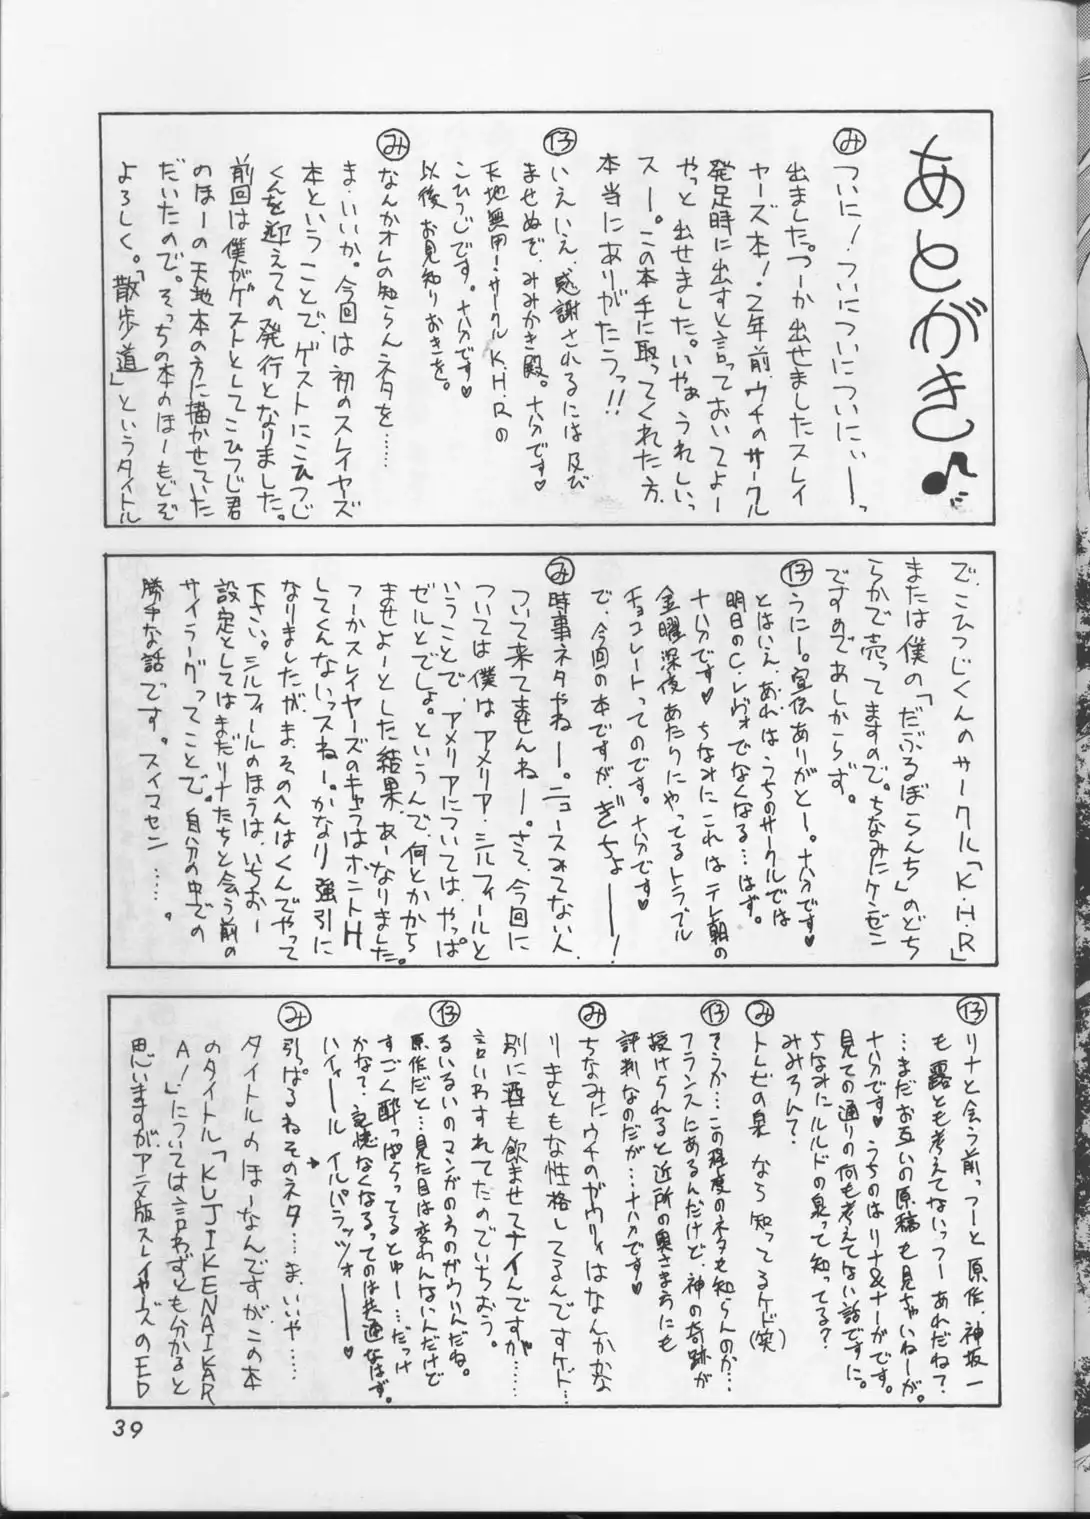 あとがき♪
み ついに！ついについについにぃーーっ
出ましたっつーか出せましたスレイ
ヤーズ本！2年前、ウチのサークル
発足時に出すと言っておいてよー
やっと出せました。いやぁうれしいっ
スー。この本手に取ってくれた方、
本当にありがたうっ!!
仔 いえいえ、感謝されるには及び
ませぬで、みみかき殿。十分です♥
天地無用！サークルK.H.Rの
こひつじです。十分です♥
以後お見知りおきを。
み なんかオレの知らんネタを……
ま、いいか。今回は初のスレイヤーズ
本ということで、ゲストにこひつじ
くんを迎えての発行となりました。
前回は僕がゲストとしてこひつじ君
のほーの天地本の方に描かせていた
だいたので。そっちの本のほーもどぞ
よろしく。「散歩道」というタイトル
で、こひつじくんのサークル「K・H・R」
または僕の「だぶるぼらんち」のどち
らかで売ってますので。ちなみにケンゼン
ですのであしからず。
仔 うにー。宣伝ありがとー。十分です♥
とはいえ、あれはうちのサークルでは
明日のC.レヴォでなくなる…はず。
十分です♥ ちなみにこれはテレ朝の
金曜深夜あたりにやってるトラブル
チョコレートってのです。十分です♥
で、今回の本ですが、ぎちょーーー！
み 時事ネタやねー。ニュースみてない人、
ついて来てませんねー。さて、今回に
ついては僕はアメリア・シルフィールと
いうことで、アメリアについては、やっぱ
ゼルとでしょ。というんで、何とかから
ませよーとした結果、あーなりました。
つーかスレイヤーズのキャラはホントH
してくんないっスねー。かなり強引に
なりましたが、ま、そのへんはくんでやって
下さい。シルフィールのほうは、いちおー
設定としてはまだリナたちと会う前の
サイラーグってことで。自分の中での
勝手な話です。スイマセン……。
仔 リナと会う前っつーと原作、神坂一
も露とも考えてないっつーあれだね？
…まだお互いの原稿も見ちゃいねーが。
十分です♥ うちのはリナ&ナーがです。
見ての通りの何も考えてない話ですに。
ちなみにルルドの泉って知ってる？
みみろんて？
み トレビの泉なら知ってるケド(笑)
仔 そうか…この程度のネタも知らんのか…
フランスにあるんだけど、神の奇跡が
授けられると近所の奥さまがにも
評判なのだが…十分です♥
み ちなみにウチのガウリィはなんかかな
りまともな性格してるんですケド…
別に酒も飲ませてナイんですが……
言いわすれてたのでいちおう。
仔 るいるいのマンガのほうのガウリィだね。
原作だと…見た目は変わんないんだけど
すごく酔っぱらってるとゆー…だっけ
かな？ 記憶なくなるってのは共通なはず。
ハイィール イルパラッツォーーーー♥
み 引っぱるねそのネタ……ま、いいや……
タイトルのほーなんですが、この本
のタイトル「KUJIKENAIKAR
A！」については言わずとも分かると
思いますが、アニメ版スレイヤーズのED
39